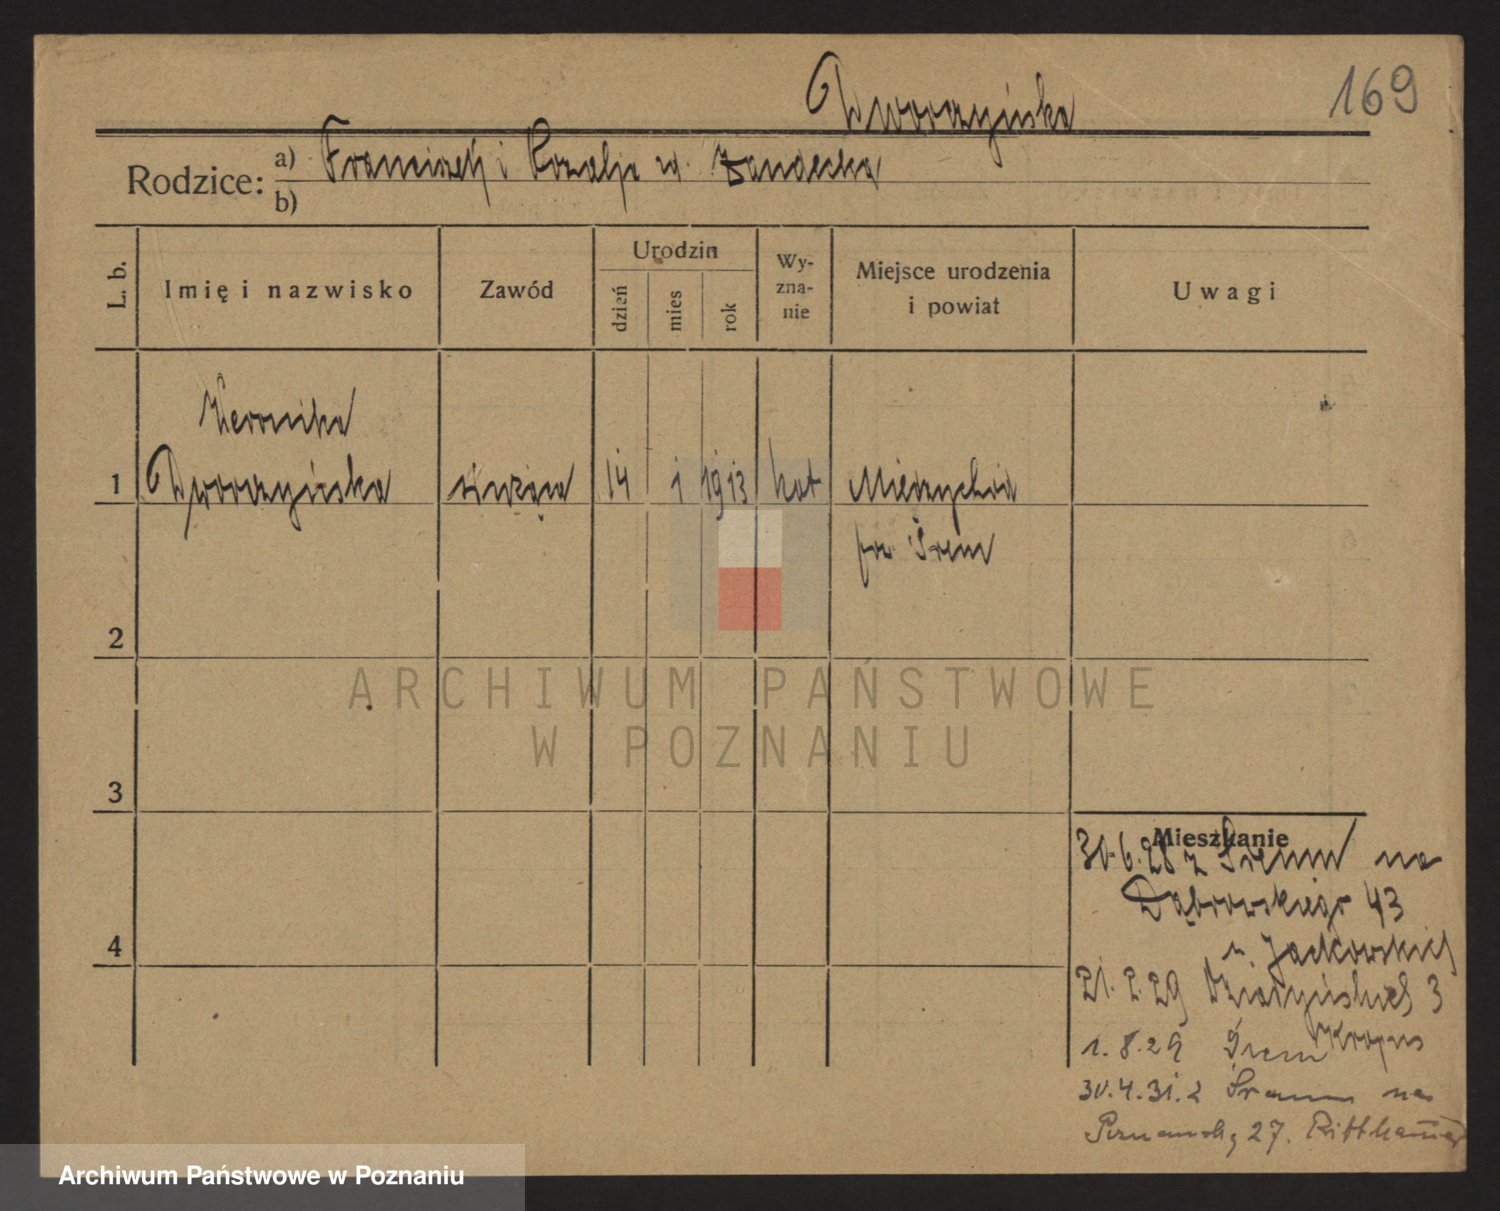 169
Dworczyńska
Rodzice: a) Franciszek i Rozalja
b)
L. b.
Imię i nazwisko
Zawód
Urodzin
dzień
mies
rok
Wy-
zna-
nie
Miejsce urodzenia
i powiat
Uwagi
Weronika
1 Dworczyńska służąca 14 1 1913 kat Mieczychód
pw Śrem
2
3
4
ARCHIWUM PAŃSTWOWE
W POZNANIU
Mieszkanie
30.6.28 z Śremu na
Dąbrowskiego 43
u. Jackowskich
21.2.29 Działyńskich 3
1.8.29 Śrem
30.4.31. z Śremu na
27.
Archiwum Państwowe w Poznaniu